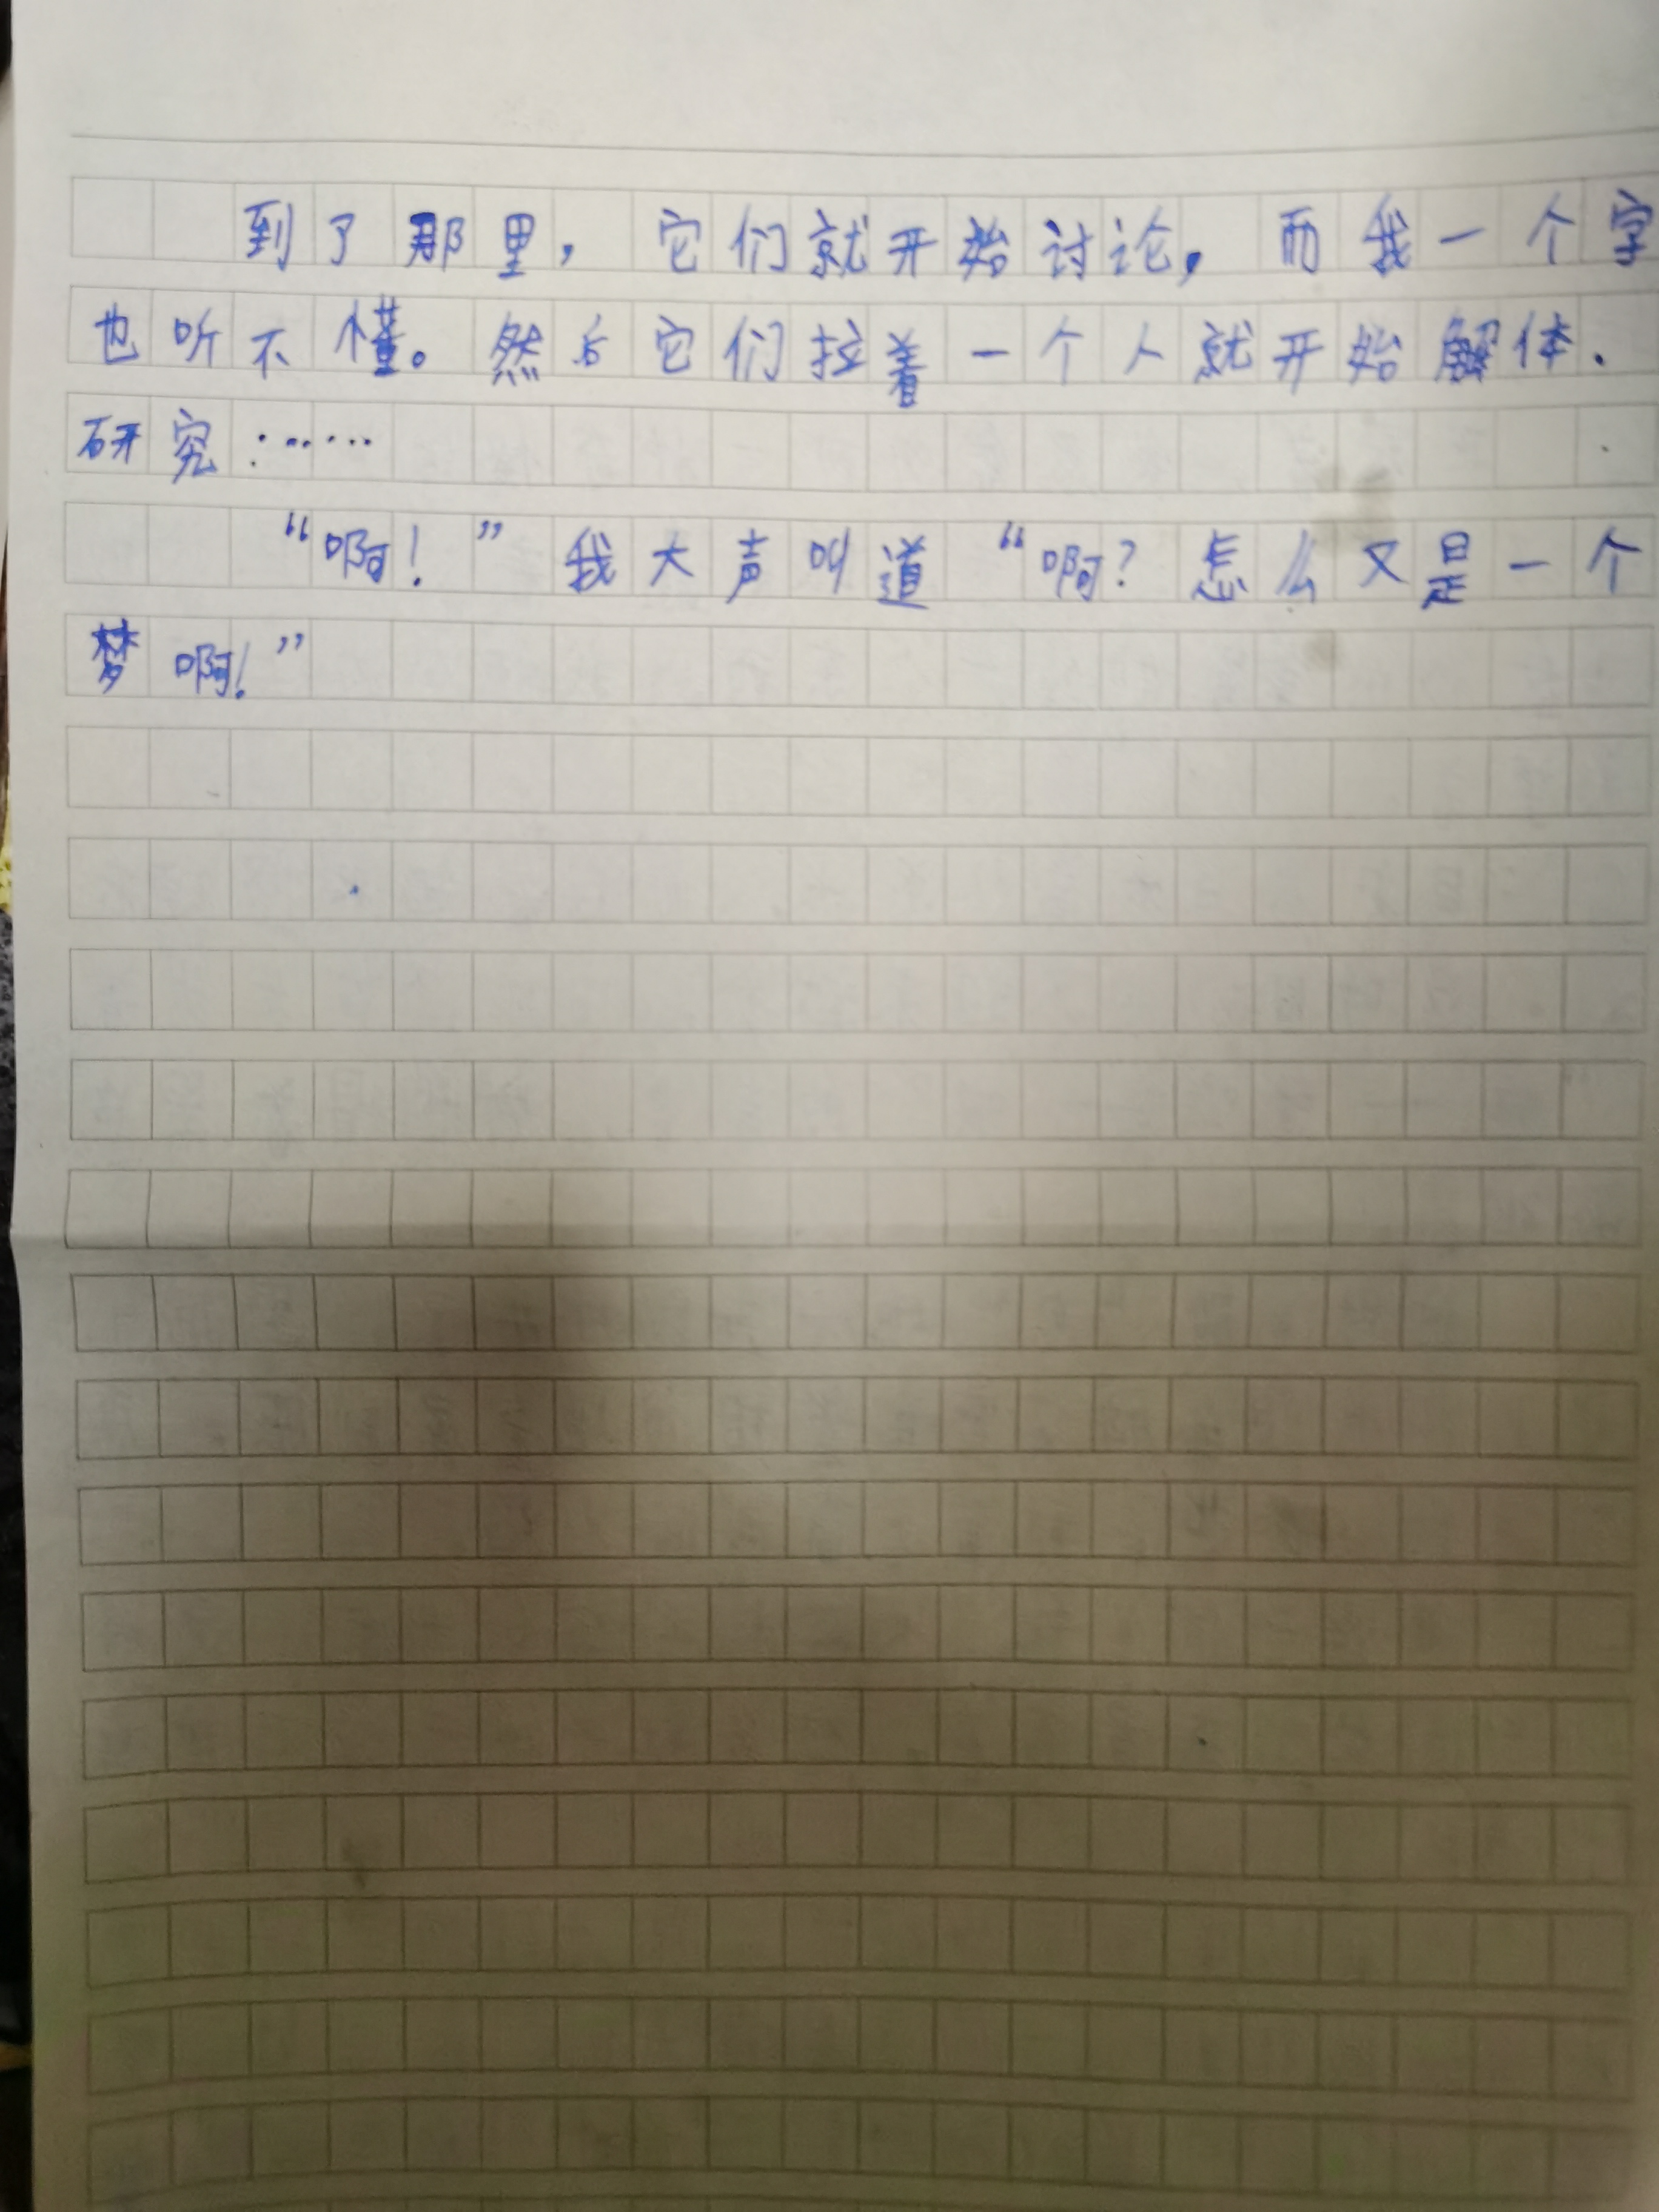 到了那里，它们就开始讨论，而我一个字
也听不懂。然后它们拉着一个人就开始解体.
研究:……
“啊！”我大声叫道“啊？怎么又是一个
梦啊！”